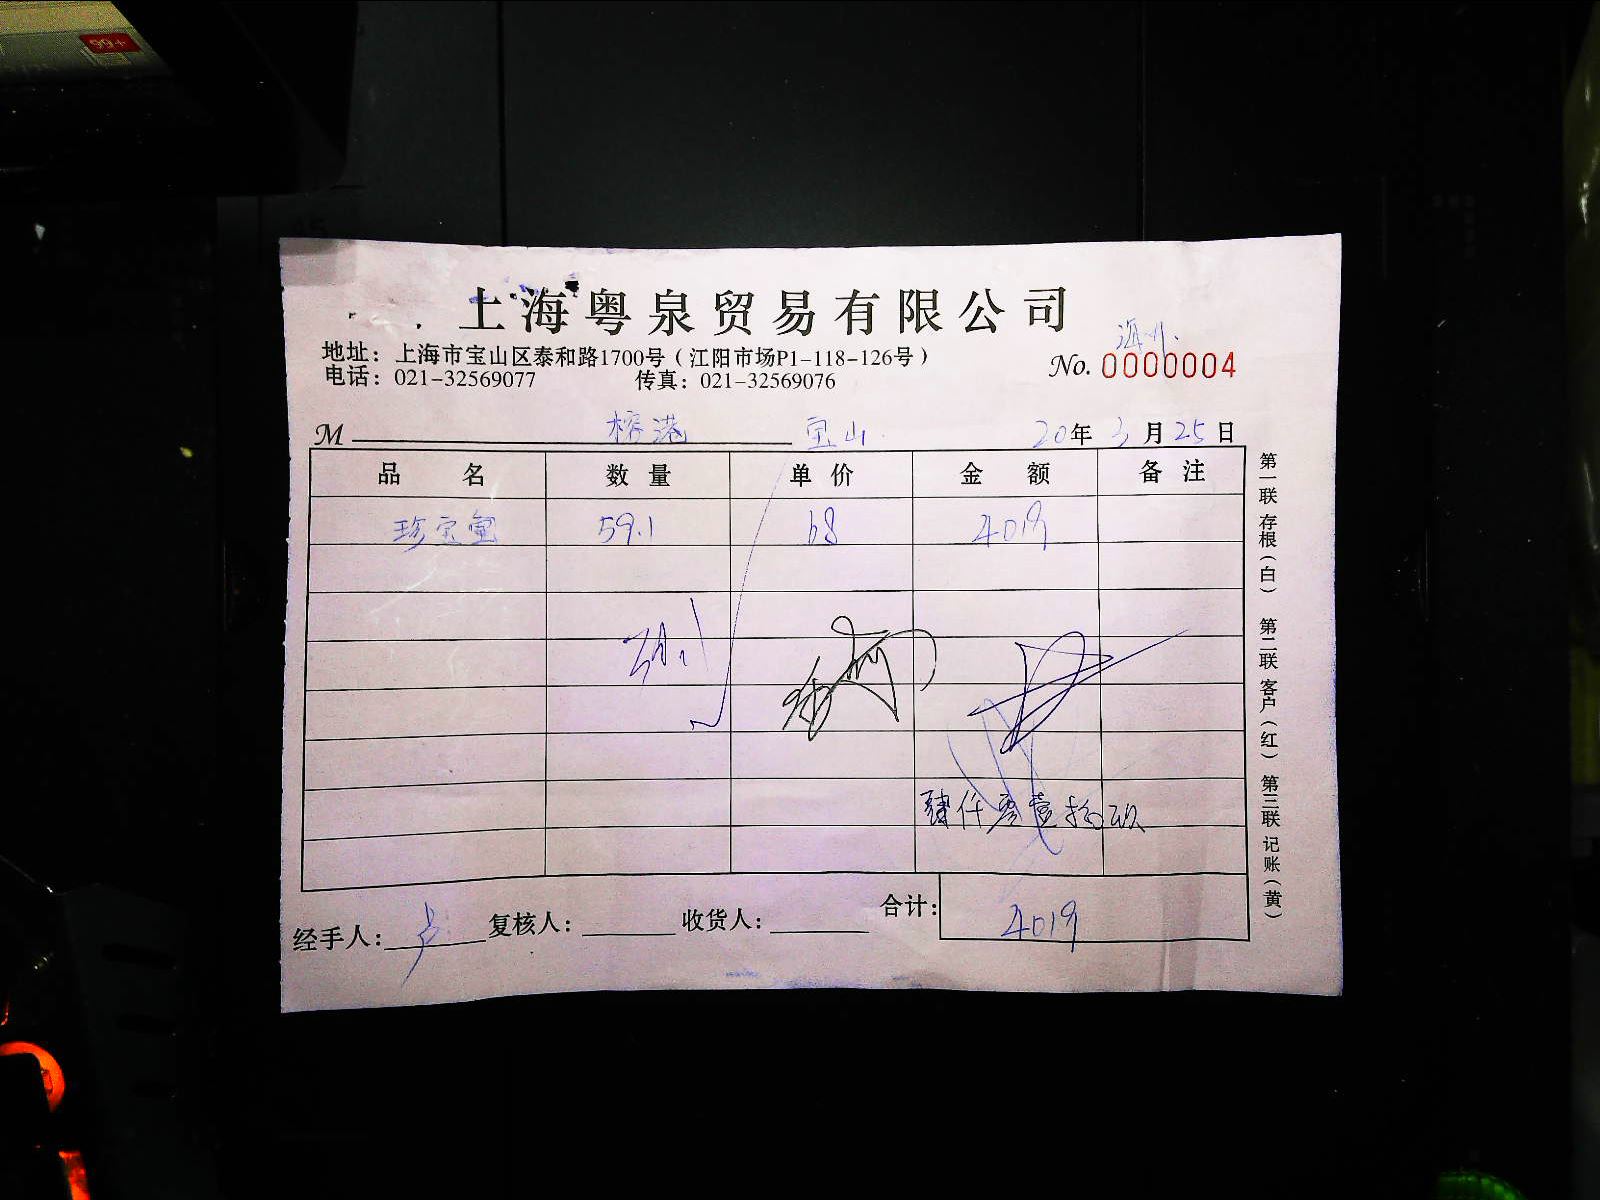 99+
上海粤泉贸易有限公司
地址：上海市宝山区泰和路1700号（江阳市场P1-118-126号）
电话：021-32569077 传真：021-32569076
No. 0000004
M 榕港 宝山 20年 3月 25日
品名 数量 单价 金额 备注
珍宝蟹 59.1 68 4019
59.1
肆仟零壹拾玖
合计： 4019
经手人： 复核人： 收货人：
第一联 存根（白） 第二联 客户（红） 第三联 记账（黄）